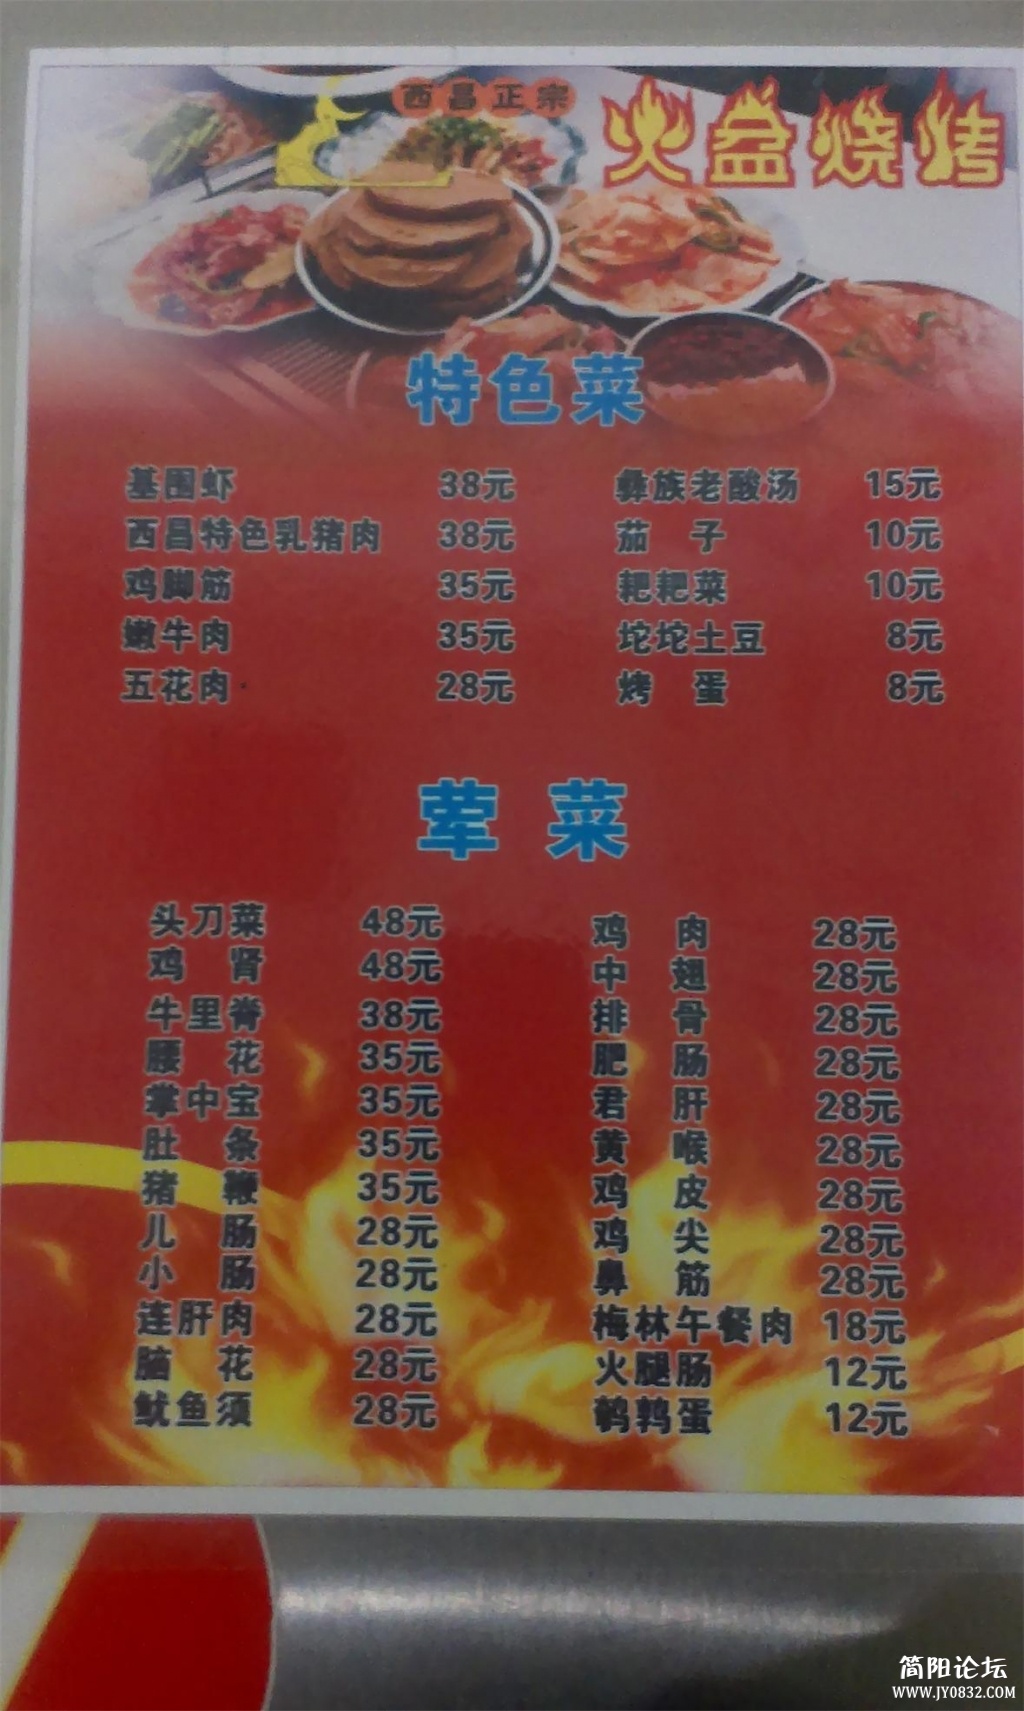 西昌正宗
火盆烧烤
特色菜
基围虾 38元 彝族老酸汤 15元
西昌特色乳猪肉 38元 茄子 10元
鸡脚筋 35元 粑粑菜 10元
嫩牛肉 35元 坨坨土豆 8元
五花肉 28元 烤蛋 8元
荤菜
头刀菜 48元 鸡肉 28元
鸡肾 48元 中翅 28元
牛里脊 38元 排骨 28元
腰花 35元 肥肠 28元
掌中宝 35元 君肝 28元
肚条 35元 黄喉 28元
猪鞭 35元 鸡皮 28元
儿肠 28元 鸡尖 28元
小肠 28元 鼻筋 28元
连肝肉 28元 梅林午餐肉 18元
脑花 28元 火腿肠 12元
鱿鱼须 28元 鹌鹑蛋 12元
简阳论坛
www.JY0832.com